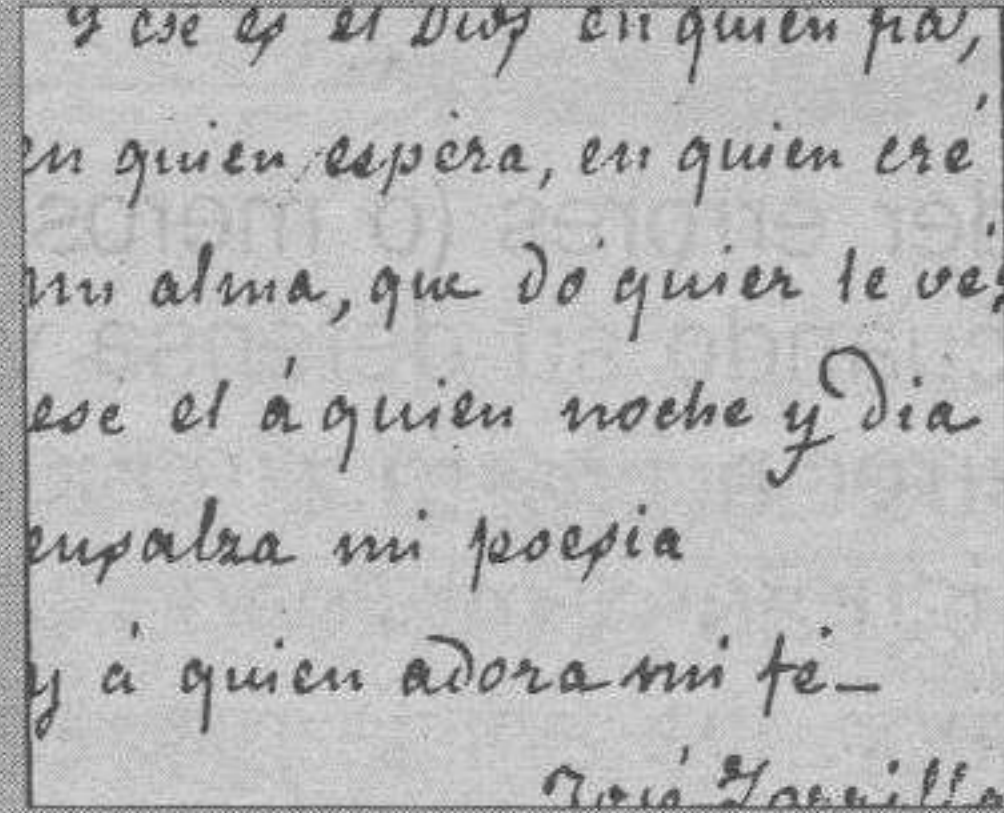 Y ese es el Dios en quien fia,
en quien espera, en quien cré
mi alma, que dó quier le vé,
ese el á quien noche y dia
ensalza mi poesia
y á quien adora mi fé_
José Zorrilla